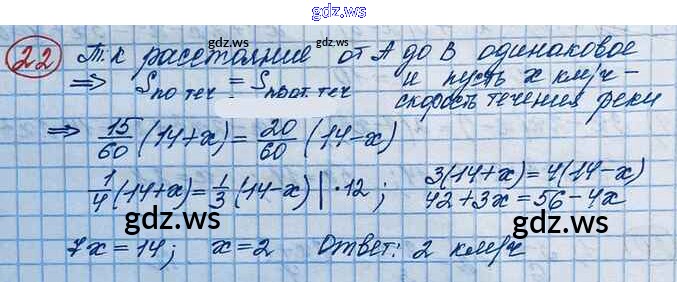 gdz.ws
22 Т.к расстояние от А до В одинаковое
gdz.ws
⇒ Sпо теч = Sпрот. теч и пусть x км/ч -
скорость течения реки
⇒ 15/60 (14+x) = 20/60 (14-x)
1/4 (14+x) = 1/3 (14-x) | ·12 ; 3(14+x) = 4(14-x)
42+3x = 56-4x
gdz.ws
gdz.ws
7x = 14; x = 2 Ответ: 2 км/ч
gdz.ws